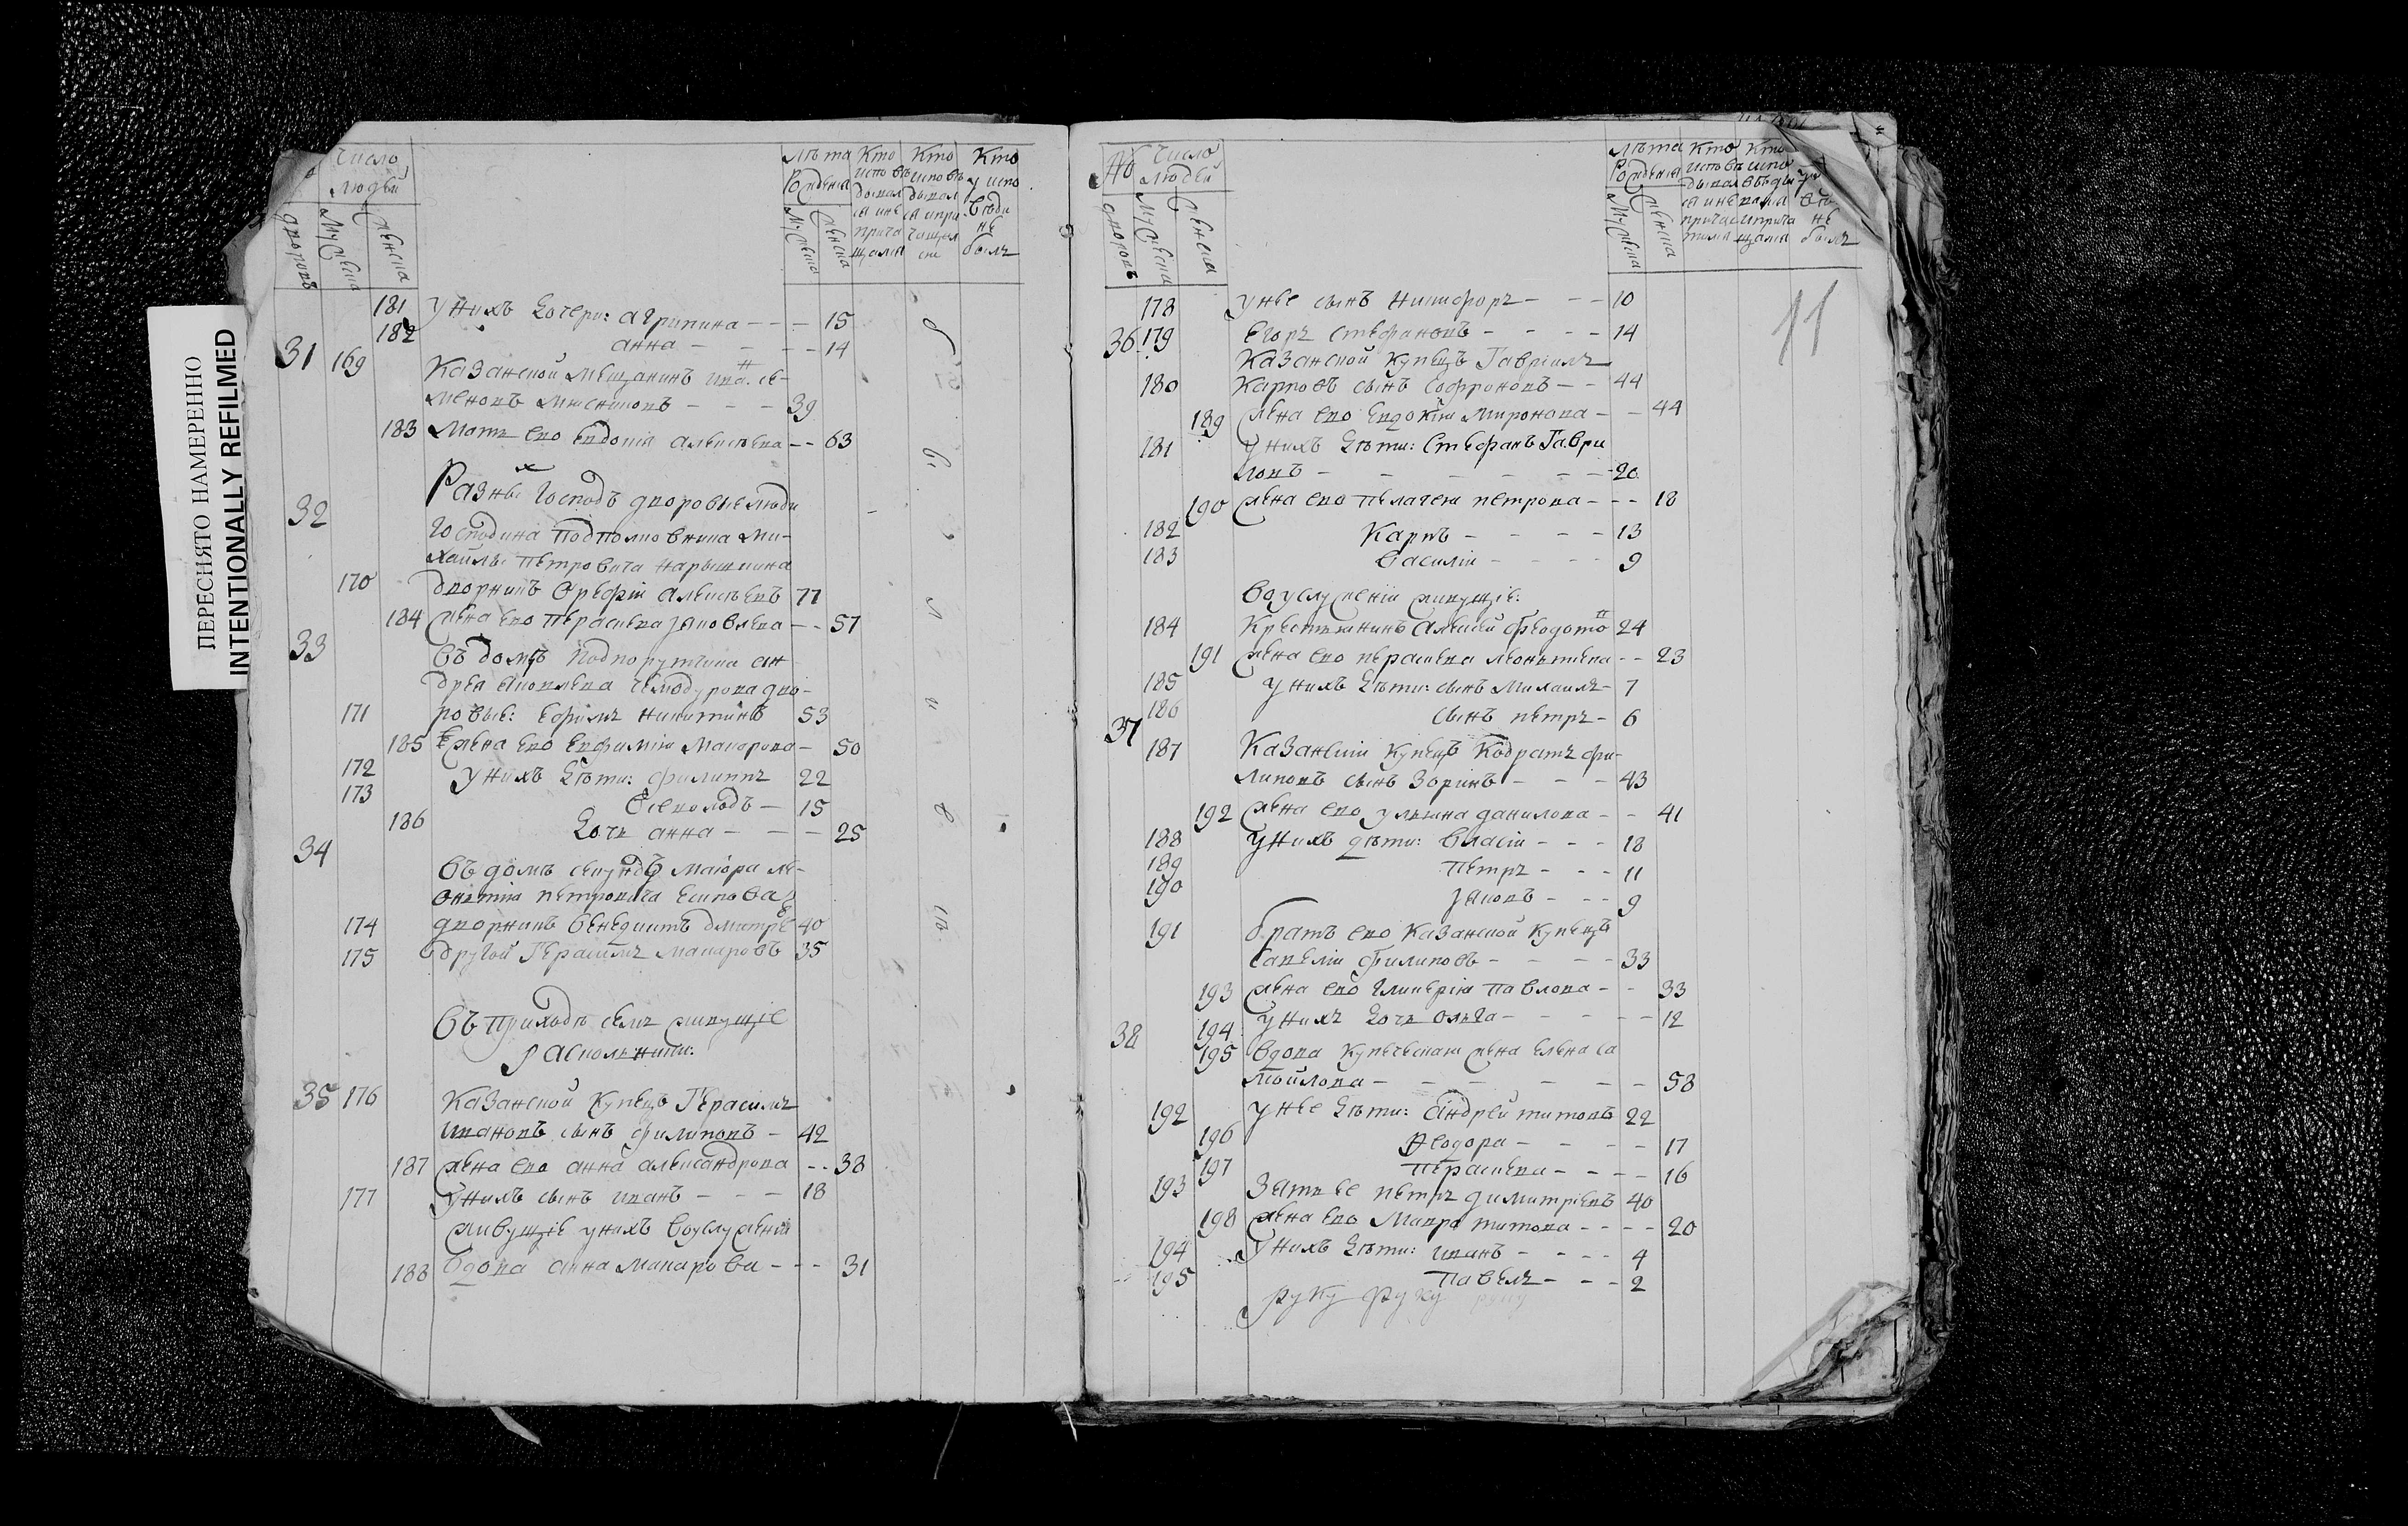 ПЕРЕСНЯТО НАМЕРЕННО
INTENTIONALLY REFILMED
Число людей
дворовъ
Мужеска
Женска
Лѣта рожденiя
Мужеска
Женска
Кто исповѣдывался и не причащался
Кто исповѣдывался и причащался
Кто у исповѣди не былъ
181 у нихъ дочери: агрипина - - - 15
182 анна - - - 14
31 169 Казанской мещанинъ иванъ се-
меновъ - - - 39
183 Мать ево евдокия алексѣева - - 63
Разныхъ господъ дворовые люди
32 Господина подполковника Ми-
хайлы Петровича Нарышкина
170 дворникъ Арефiй алексѣевъ 77
184 жена ево Парасковья яковлева - - 57
33 въ домѣ подпоручика ан-
дрея яковлева дво-
171 ровые: ефимъ никитинъ 53
185 жена ево евфимия Макарова - 50
172 у нихъ дѣти: филиппъ 22
173 Всеволодъ - 15
186 дочь анна - - - 25
34 въ домѣ секундъ маiора ле-
онтия петровича есипова
174 дворникъ Венедиктъ дмитрiе 40
175 другой Герасимъ Макаровъ 35
въ приходѣ семъ живущiе
раскольники:
35 176 Казанской купецъ Герасимъ
ивановъ сынъ филиповъ - 42
187 жена ево анна александрова - - 38
177 у нихъ сынъ иванъ - - - 18
живущiе у нихъ во услуженiи
188 вдова анна макарова - - - 31
Число людей
дворовъ
Мужеска
Женска
Лѣта рожденiя
Мужеска
Женска
11
178 у нее сынъ никифоръ - - - 10
36 179 егоръ стефановъ - - - - 14
Казанской купецъ Гаврiилъ
180 Карповъ сынъ Софроновъ - - 44
189 жена ево евдокия миронова - - 44
181 у нихъ дѣти: Стефанъ Гаври
ловъ - - - - - - 20
190 жена ево пелагея петрова - - - 18
182 Карпъ - - - - 13
183 Василiй - - - - 9
Во услуженiи живущiе:
184 Крестьянинъ Алексей Федотовъ 24
191 жена ево парасковья леонтиева - - 23
185 у нихъ дѣти: сынъ Михаилъ - 7
186 сынъ петръ - 6
37
187 Казанскiй купецъ Кодратъ фи-
липовъ сынъ Зоринъ - - - 43
192 жена ево ульяна данилова - - 41
188 у нихъ дѣти: Власiй - - - 18
189 Петръ - - - 11
190 яковъ - - - 9
191 братъ ево казанской купецъ
Савелiй Филиповъ - - - - 33
193 жена ево гликерiя Павлова - - 33
38 194 у нихъ дочь ольга - - - - - 12
195 вдова купеческая жена елена са
мойлова - - - - - - 58
192 у нее дѣти: Андрей титовъ 22
196 Федора - - - - 17
197 Парасковья - - - - 16
193 Зять ее петръ димитрiевъ 40
198 жена ево Мавра титова - - - - 20
194 у нихъ дѣти: иванъ - - - - 4
195 Павелъ - - - 2
руку руку руку